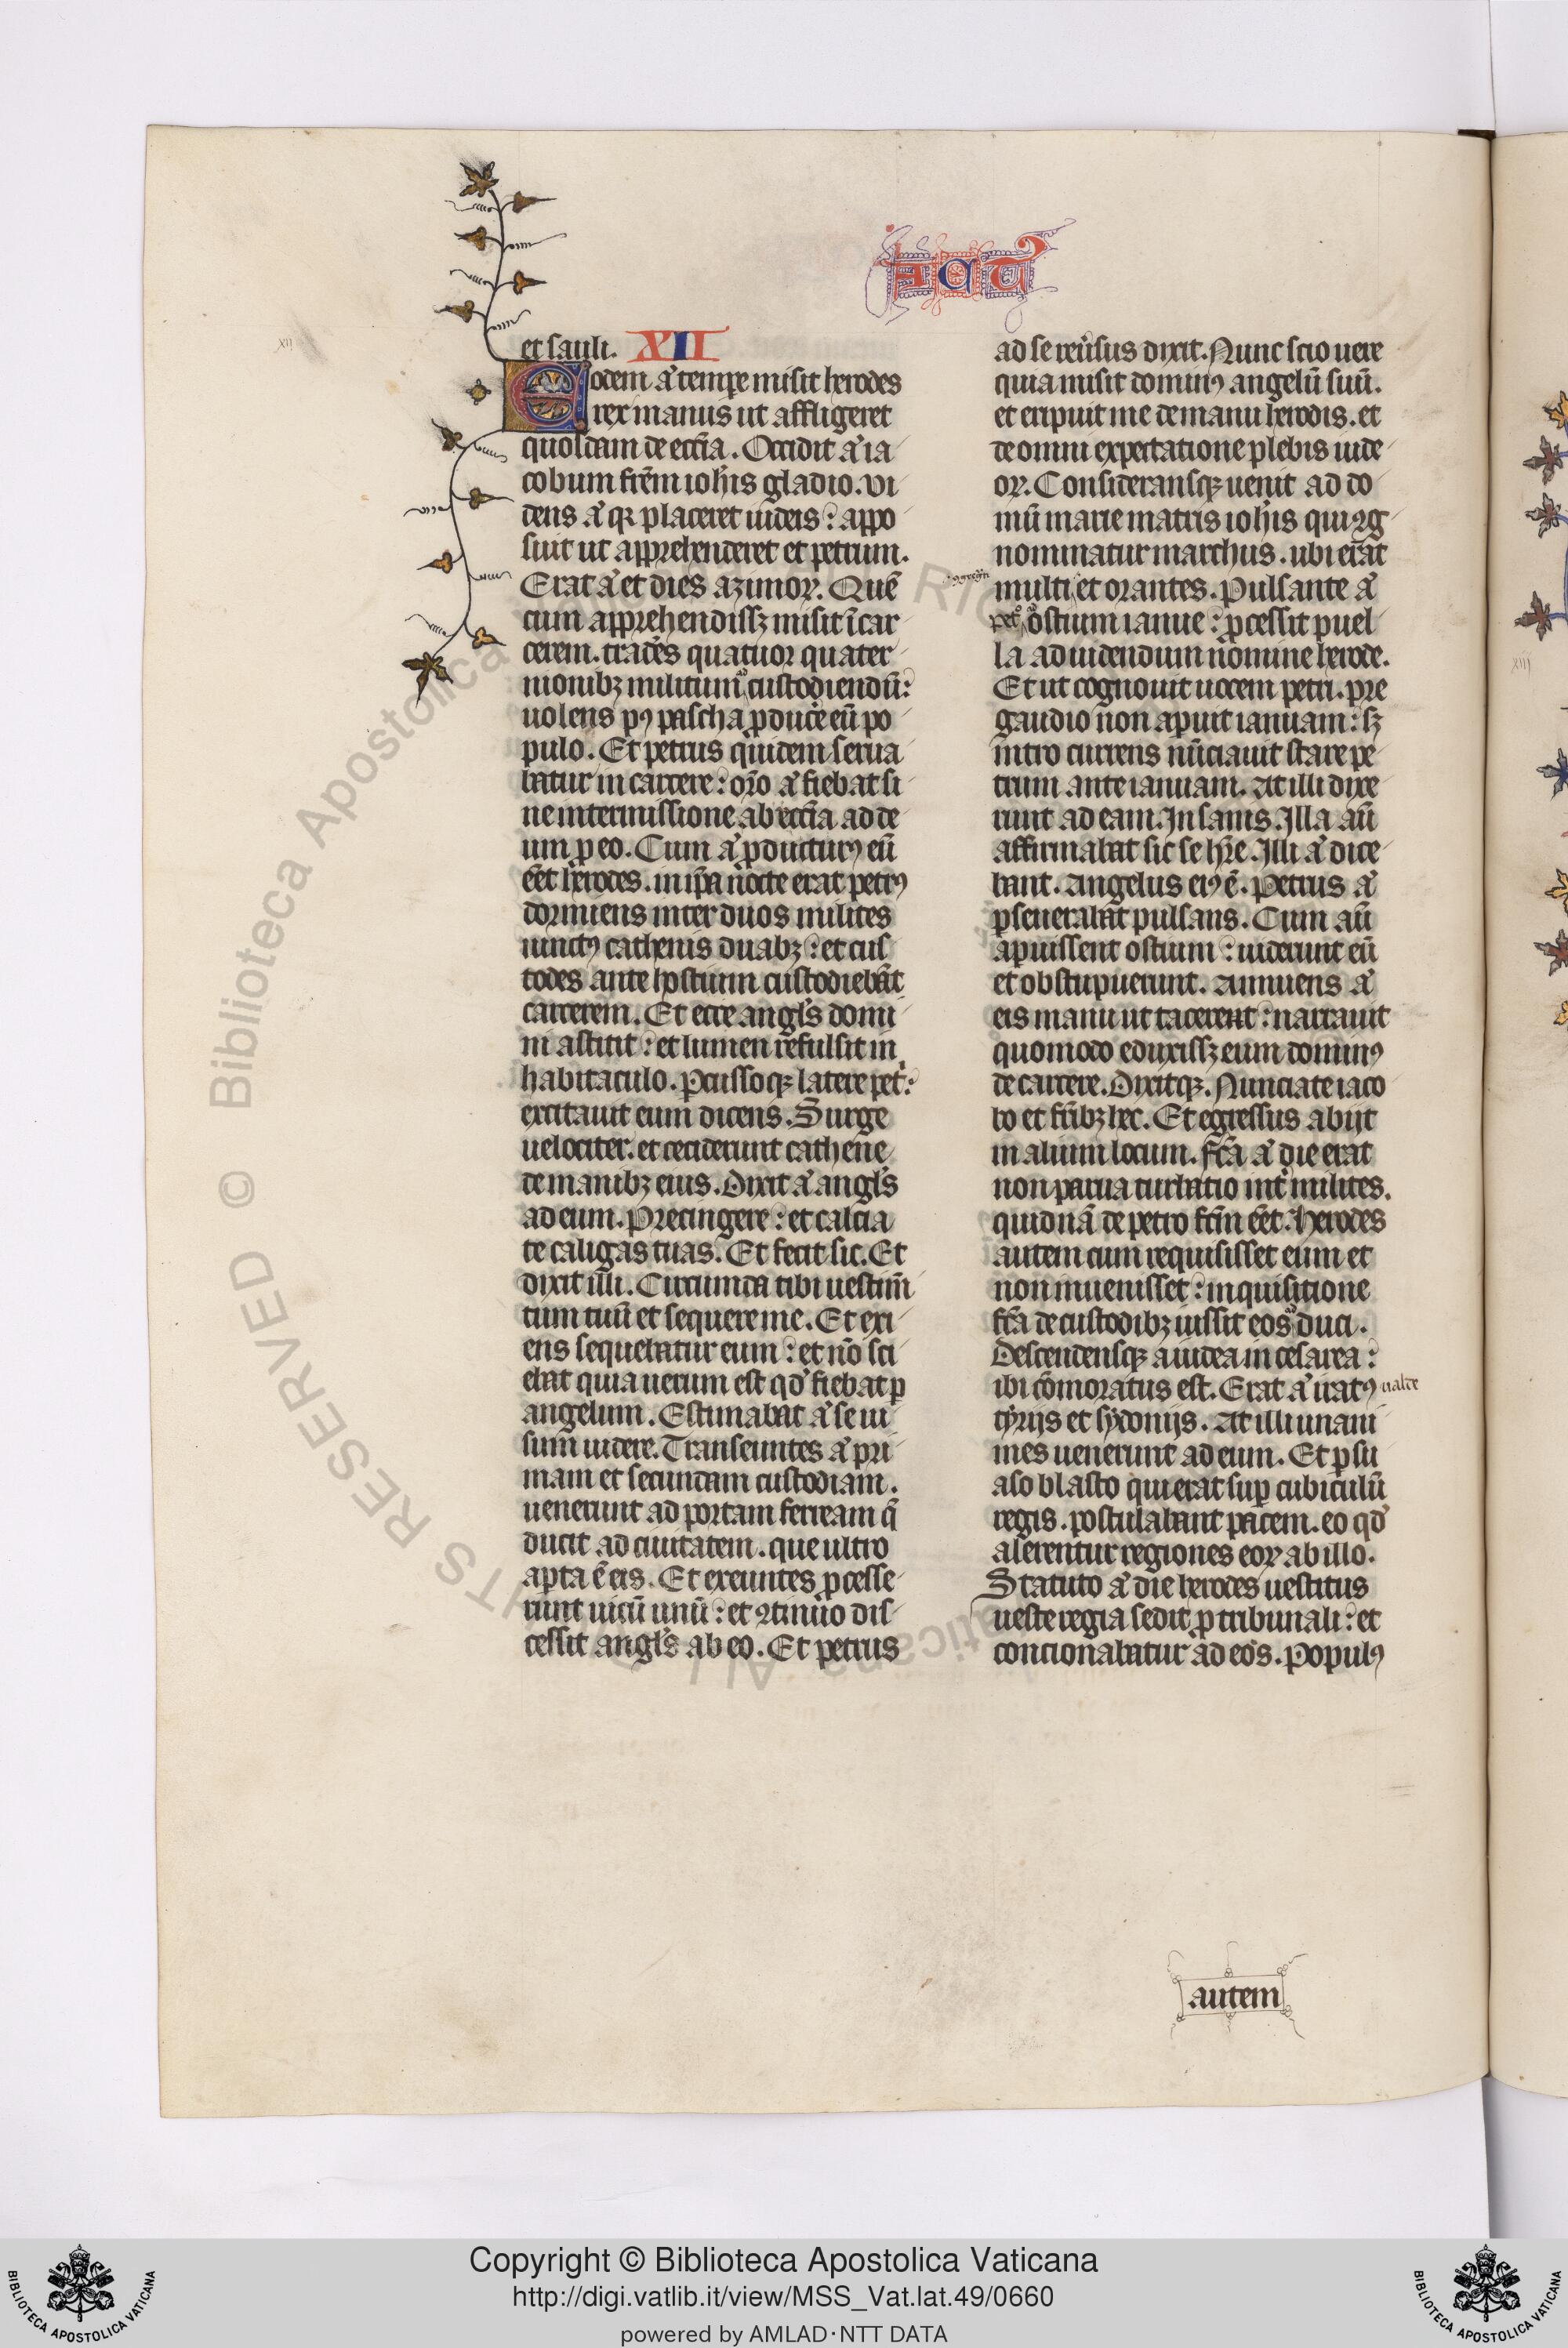 ACT
xii
et sauli. XII
Eodem aͣ tempe misit herodes
rex manus ut affligeret
quosdam de eccl̄ia. Occidit aͣ ia
cobum frēm ioh̄is gladio. Vi
dens aͣ qꝛ placeret iudeis: appo
suit ut apprehenderet et petrum.
Erat aͣ et dies azimoꝝ. Quē
cum apprehendissꝫ misit ī car
cerem. tradēs quatuor quater
nionibꝫ militum custodiendū:
uolens pꝰ pascha ꝓducē eū po
pulo. Et petrus quidem serua
batur in carcere: or̄o aͣ fiebat si
ne intermissione ab eccl̄ia ad de
um ꝓ eo. Cum aͣ ꝓducturꝰ eū
eēt herodes. in ip̄a nocte erat petrꝰ
dormiens inter duos milites
uinctꝰ cathenis duabꝫ: et cus
todes ante hostium custodiebāt
carcerem. Et ecce angl̄s domi
ni astitit: et lumen refulsit in
habitaculo. Ꝑcussoqꝫ latere pet͛:
excitauit eum dicens. Surge
uelociter. et ceciderunt cathene
de manibꝫ eius. Dixit aͣ angl̄s
ad eum. Precingere: et calcia
te caligas tuas. Et fecit sic. Et
dixit illi. Circumda tibi uestim̄
tum tuū et sequere me. Et exi
ens sequebatur eum: et nō sci
ebat quia uerum est qd̓ fiebat ꝑ
angelum. Estimabat aͣ se ui
sum uidere. Transeuntes aͣ pri
mam et secundam custodiam.
uenerunt ad portam ferream q̄
ducit ad ciuitatem. que ultro
apta ē eis. Et exeuntes ꝓcesse
runt uicū unū: et ꝯtinuo dis
cessit angl̄s ab eo. Et petrus
ad se reu͛sus dixit. Nunc scio uere
quia misit dominꝰ angelū suū.
et eripuit me de manu herodis. et
de omni expectatione plebis iude
oꝝ. Consideransqꝫ uenit ad do
mū marie matris ioh̄is qui ꝯg
nominatur marchus. ubi erāt
ꝯgregati
multi et orantes. Pulsante aͣ
petͦ ostium ianue: ꝓcessit puel
la ad uidendum nomine herode.
Et ut cognouit uocem petri. pre
gaudio non apuit ianuam: sꝫ
intro currens nūciauit stare pe
trum ante ianuam. At illi dixe
runt ad eam. Insanis. Illa aū
affirmabat sic se hr̄e. Illi aͣ dice
bant. Angelus eiꝰ ē. Petrus aͣ
ꝑseuerabāt pulsans. Cum aū
apuissent ostium: uiderunt eū
et obstupuerunt. Annuens aͣ
eis manu ut tacerent: narrauit
quomodo eduxissꝫ eum dominꝰ
de carcere. Dixitqꝫ. Nunciate iaco
bo et fr̄ibꝫ hec. Et egressus abijt
in alium locum. Fc̄a aͣ die erat
non parua turbatio int͛ milites.
quidnā de petro fc̄m eēt. Herodes
autem cum requisisset eum et
non inuenisset: inquisitione
fc̄a de custodibꝫ iussit eos duci.
Descendensqꝫ a iudea in cesarea:
ibi cōmoratus est. Erat aͣ iratꝰ
ualde
tyrijs et sydonijs. At illi unani
mes uenerunt ad eum. Et ꝑsu
aso blasto qui erat suꝑ cubiculū
regis. postulabant pacem. eo qd̓
alerentur regiones eoꝝ ab illo.
Statuto aͣ die herodes uestitus
ueste regia sedit ꝓ tribunali: et
concionabatur ad eos. Populꝰ
autem
xiii
© Biblioteca Apostolica Vaticana ALL RIGHTS RESERVED
Copyright © Biblioteca Apostolica Vaticana
http://digi.vatlib.it/view/MSS_Vat.lat.49/0660
powered by AMLAD·NTT DATA
BIBLIOTECA APOSTOLICA VATICANA
BIBLIOTECA APOSTOLICA VATICANA